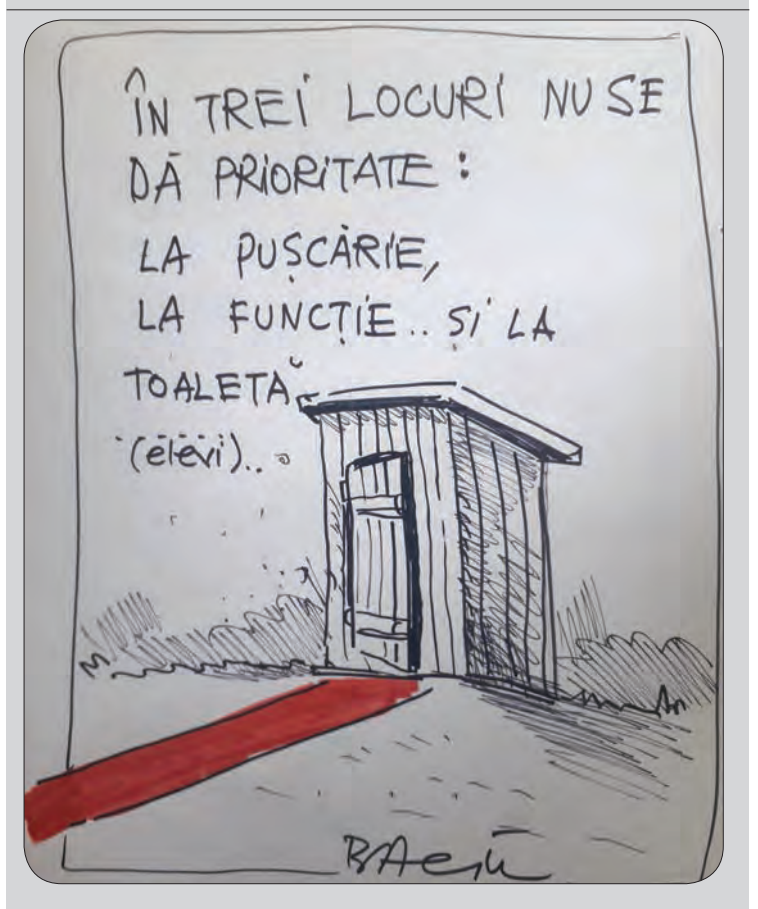 ÎN TREI LOCURI NU SE
DĂ PRIORITATE :
LA PUȘCĂRIE,
LA FUNCȚIE.. ȘI LA
TOALETĂ
(elevi)..